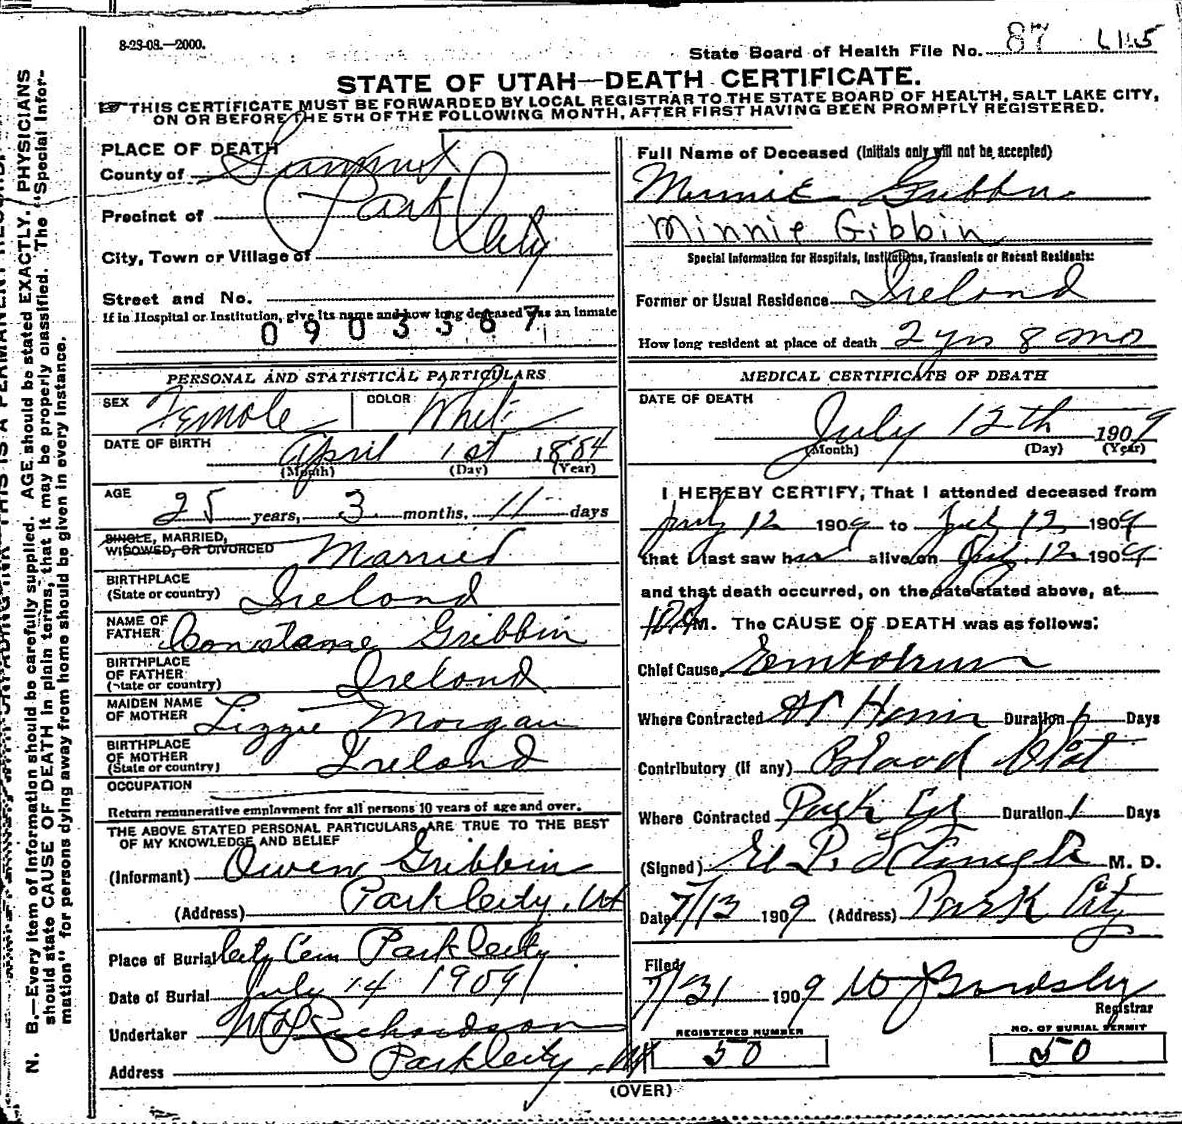 8-23-08.—2000.
State Board of Health File No. 87
STATE OF UTAH—DEATH CERTIFICATE.
THIS CERTIFICATE MUST BE FORWARDED BY LOCAL REGISTRAR TO THE STATE BOARD OF HEALTH, SALT LAKE CITY,
ON OR BEFORE THE 5TH OF THE FOLLOWING MONTH, AFTER FIRST HAVING BEEN PROMPTLY REGISTERED.
PLACE OF DEATH
County of Summit
Precinct of Park City
City, Town or Village of
Street and No.
If in Hospital or Institution, give its name and how long deceased was an inmate
0903367
PERSONAL AND STATISTICAL PARTICULARS
SEX Female COLOR White
DATE OF BIRTH April 1st 1884
(Month) (Day) (Year)
AGE 25 years, 3 months, 11 days
SINGLE, MARRIED,
WIDOWED, OR DIVORCED Married
BIRTHPLACE
(State or country) Ireland
NAME OF
FATHER Constance Gribbin
BIRTHPLACE
OF FATHER
(State or country) Ireland
MAIDEN NAME
OF MOTHER Lizzie Morgan
BIRTHPLACE
OF MOTHER
(State or country) Ireland
OCCUPATION
Return remunerative employment for all persons 10 years of age and over.
THE ABOVE STATED PERSONAL PARTICULARS ARE TRUE TO THE BEST
OF MY KNOWLEDGE AND BELIEF
(Informant) Owen Gribbin
(Address) Park City, Ut
Place of Burial City Cem Park City
Date of Burial July 14 1909
Undertaker Richardson
Address Park City, Ut
Full Name of Deceased (Initials only will not be accepted)
Minnie Gribbin
Minnie Gibbin
Special Information for Hospitals, Institutions, Transients or Recent Residents:
Former or Usual Residence Ireland
How long resident at place of death 2 yrs 8 mo
MEDICAL CERTIFICATE OF DEATH
DATE OF DEATH
July 12th 1909
(Month) (Day) (Year)
I HEREBY CERTIFY, That I attended deceased from
July 12 1909 to July 12 1909
that I last saw her alive on July 12 1909
and that death occurred, on the date stated above, at
M. The CAUSE OF DEATH was as follows:
Chief Cause, Embolism
Where Contracted At Home Duration Days
Contributory (if any) Blood Clot
Where Contracted Park City Duration 1 Days
(Signed) M. D.
Date 7/13 1909 (Address) Park City
Filed
7/31 1909
Registrar
REGISTERED NUMBER
50
NO. OF BURIAL PERMIT
50
(OVER)
N. B.—Every item of information should be carefully supplied. AGE should be stated EXACTLY. PHYSICIANS
should state CAUSE OF DEATH in plain terms, that it may be properly classified. The "Special Infor-
mation" for persons dying away from home should be given in every instance.